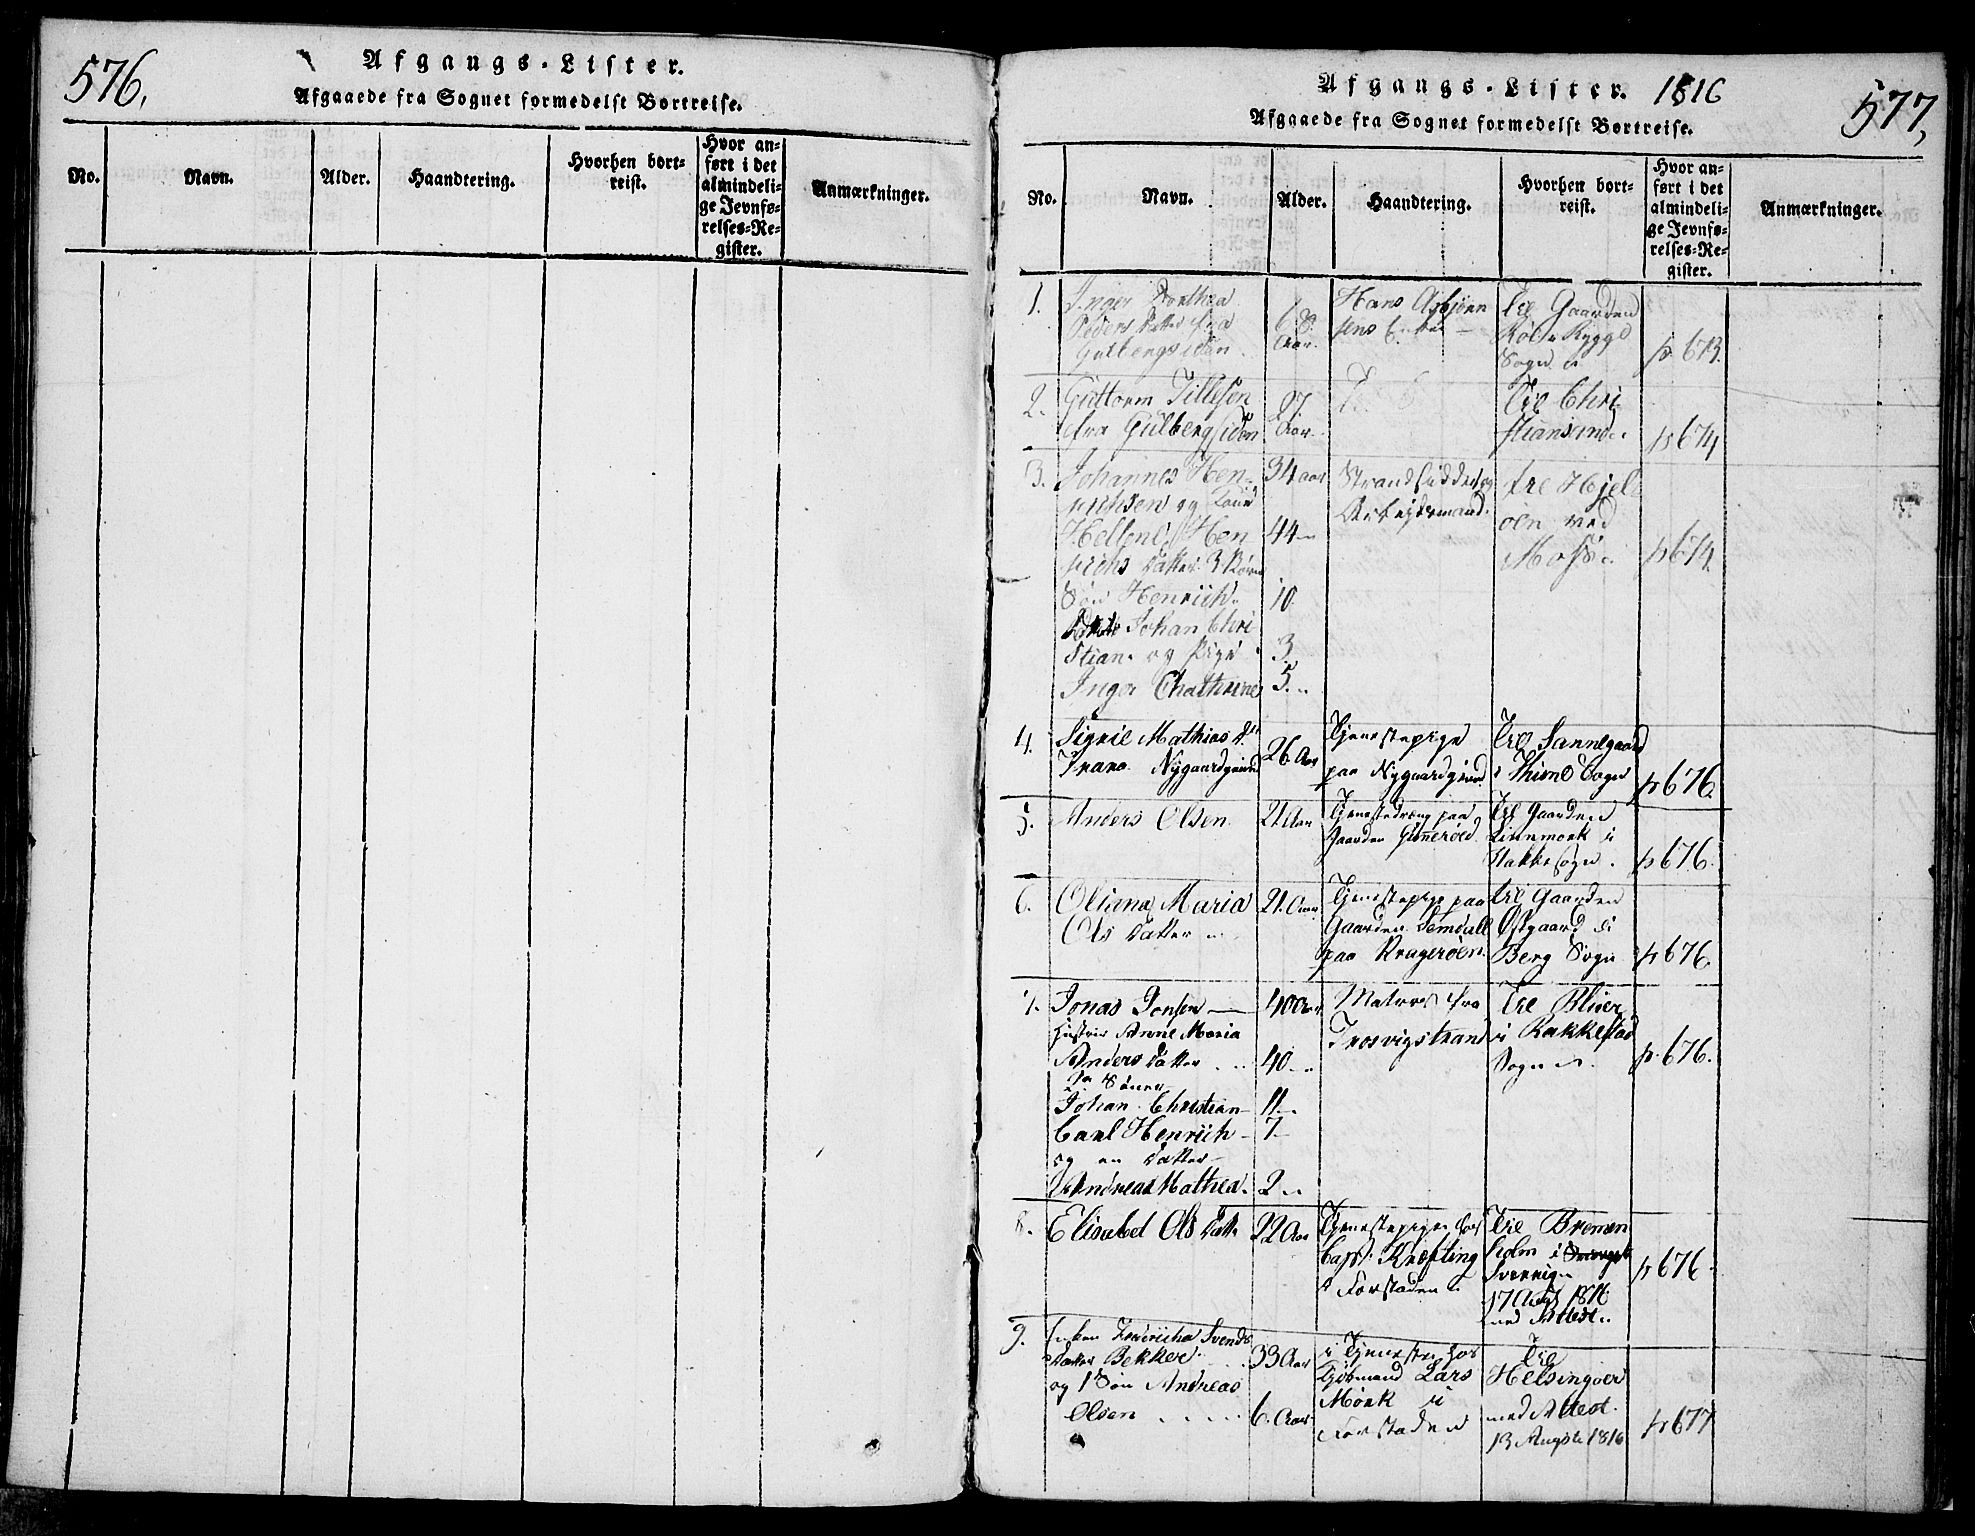 576,
Afgangs-Lister.
Afgaaede fra Sognet formedelst Bortreise.
No.
Navn.
Alder.
Haandtering.
Hvorhen bort-
reist.
Hvor an-
ført i det
almindeli-
ge Jevnfø-
relses-Re-
gister.
Anmærkninger.
Afgangs-Lister. 1816
577,
Afgaaede fra Sognet formedelst Bortreise.
No.
Navn.
Alder.
Haandtering.
Hvorhen bort-
reist.
Hvor an-
ført i det
almindeli-
ge Jevnfø-
relses-Re-
gister.
Anmærkninger.
1.
Inger Dorthea
Peders datter fra
Gulbergsiden
68
Aar.
Hans Asbjørn
sens
til Gaarden
i Rygge
Sogn
p. 673.
2.
Guttorm Tillefsen
fra Gulbergsiden
27
Aar.
til Chri
stiansund
p 674
3.
Johannes Hen-
richsen og
Hellene Hen
richs datter 3 Børn
Søn Henrich
Johan Chri
stian og Pige
Inger Chathrine
34 aar
44
10.
3.
5.
Strandsidder og
Arbejdsmand.
til Hjel
oen ved
Moss
p 674
4.
Sigrie Mathias D.
Nygaardgrund
26 Aar
Tjenestepige
paa Nygaardgrund
til Sannegaard
i Thune Sogn
p 676.
5.
Anders Olsen
21 Aar
Tjenestedreng paa
Gaarden
til Gaarden
i
Sogn.
p 676.
6.
Oliana Maria
Ols datter
21. Aar
Tjenestepige paa
Gaarden
paa Kragerøen
til Gaarden
Østgaard i
Berg Sogn
p 676.
7.
Jonas Jonsen
Hustrue Anne Maria
Anders datter
Sønner
Johan Christian
Carl Henrich
og en datter
Andrea Mathea.
40 Aar
40
11
7
2
Matros fra
Trosvigstrand
til
i Rakkestad
Sogn
p. 676.
8.
Elisabel Ols datter
22 Aar
Tjenestepige hos
Capt. Krefting
i Forstaden
til Bremen
holm i
Sverrig
17 1816
med Attest.
p 676.
9.
Enken Svends
datter Bekker
og 1 Søn Andreas
Olsen
33 Aar
6. Aar
i Tjeneste hos
Kjøbmand Lars
Mørk i
Forstaden
til
Helsingøer
med Attest.
13 Augsti 1816
p 677